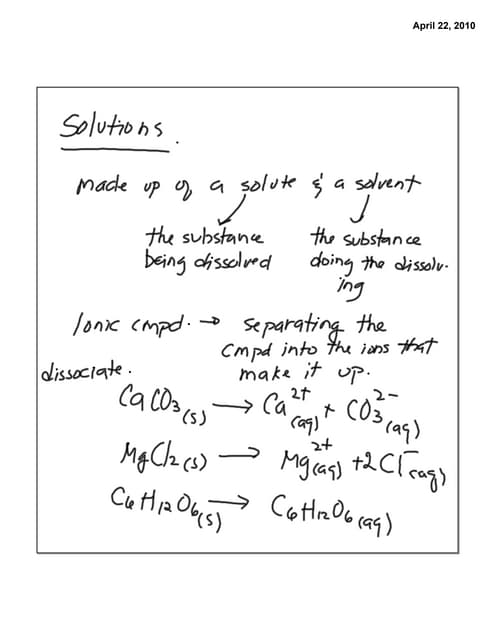 April 22, 2010
Solutions.
made up of a solute & a solvent
the substance being dissolved
the substance doing the dissolv-ing
Ionic cmpd. → separating the
cmpd into the ions that
dissociate. make it up.
CaCO₃(s) → Ca²⁺(aq) + CO₃²⁻(aq)
MgCl₂(s) → Mg²⁺(aq) + 2Cl⁻(aq)
C₆H₁₂O₆(s) → C₆H₁₂O₆(aq)